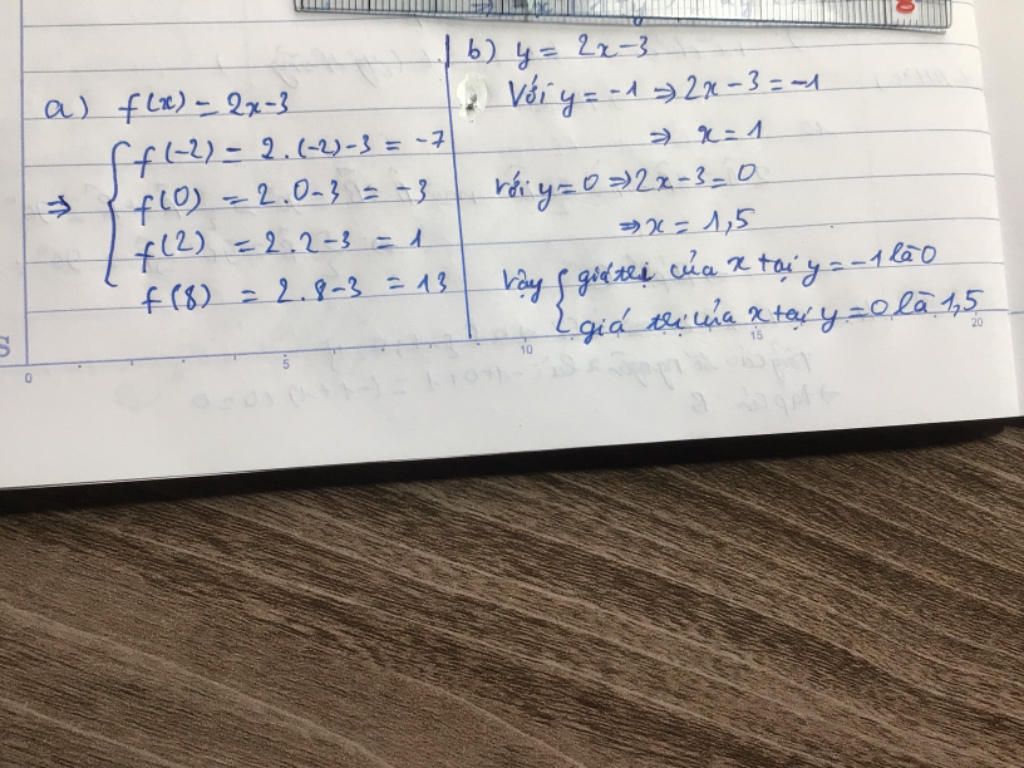 a) f(x) = 2x-3
⇒ { f(-2) = 2.(-2)-3 = -7
f(0) = 2.0-3 = -3
f(2) = 2.2-3 = 1
f(8) = 2.8-3 = 13
b) y = 2x-3
Với y = -1 ⇒ 2x-3 = -1
⇒ x = 1
với y = 0 ⇒ 2x-3 = 0
⇒ x = 1,5
Vậy { giá trị của x tại y = -1 là 0
giá trị của x tại y = 0 là 1,5
S
0 5 10 15 20